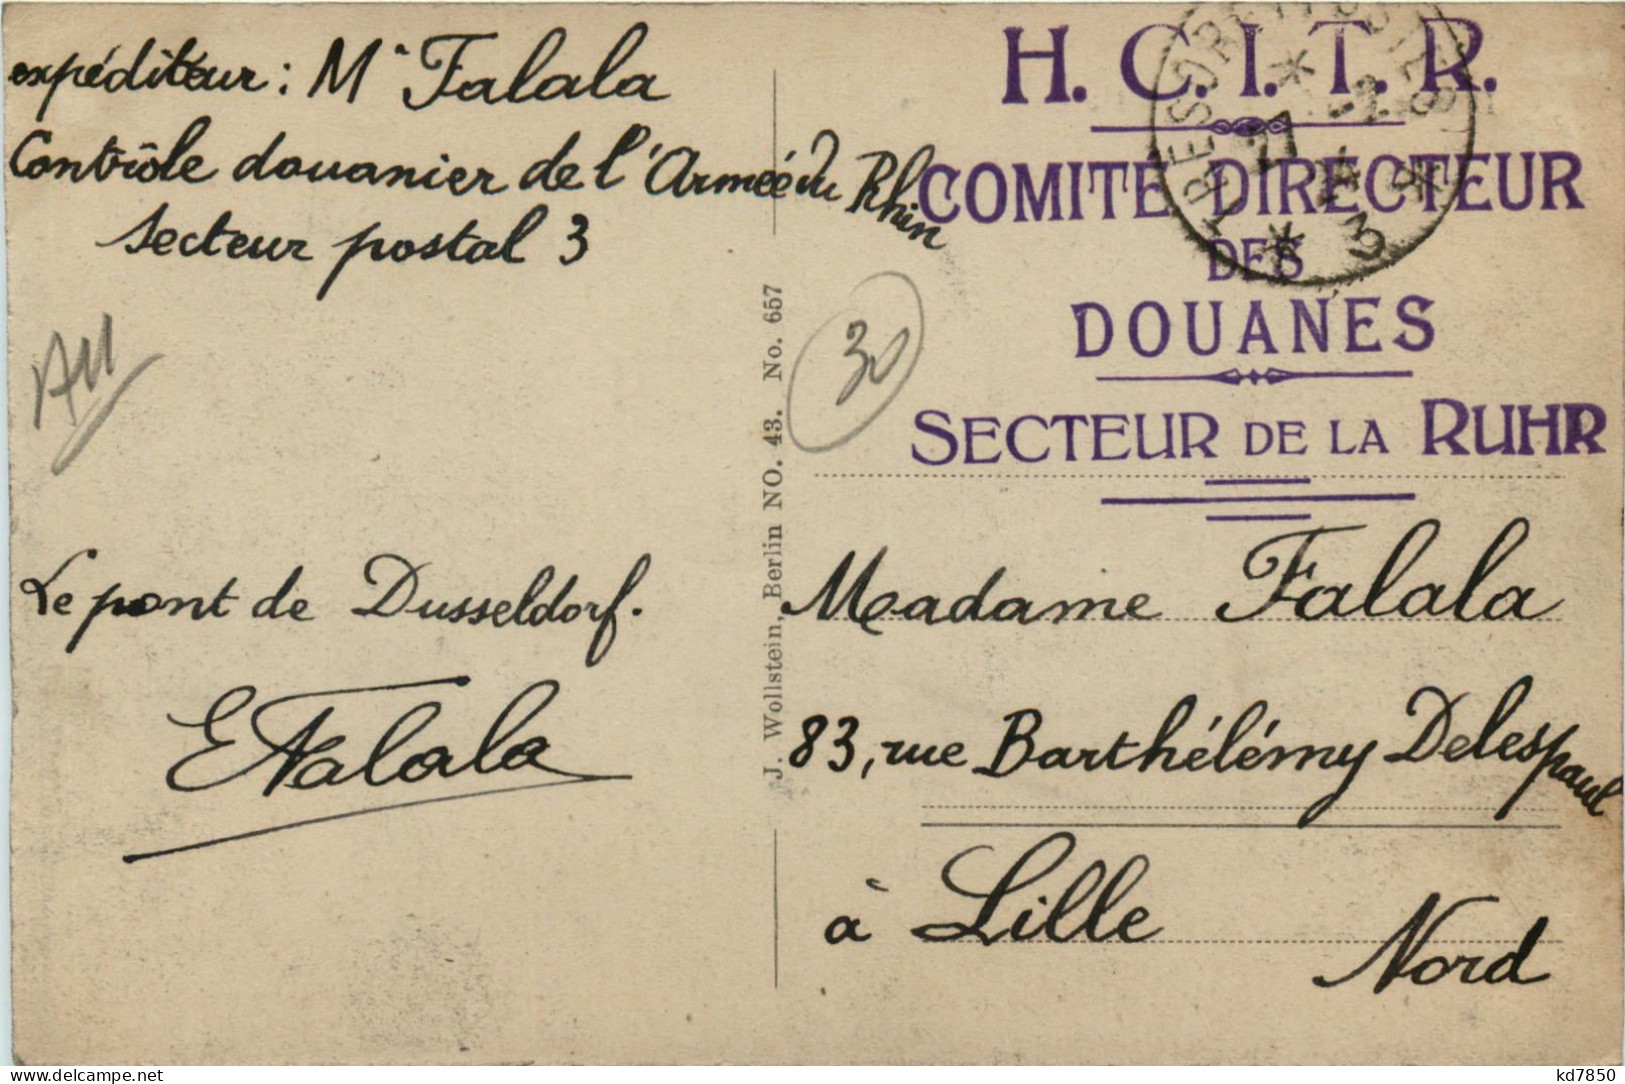 expéditeur : Mr Falala
Contrôle douanier de l'Armée du Rhin
Secteur postal 3
Le pont de Dusseldorf.
EFalala
J. Wollstein, Berlin NO. 43. No. 657
30
H. C. I. T. R.
COMITÉ DIRECTEUR
DES
DOUANES
SECTEUR DE LA RUHR
Madame Falala
83, rue Barthélémy Delespaul
à Lille
Nord
kd7850